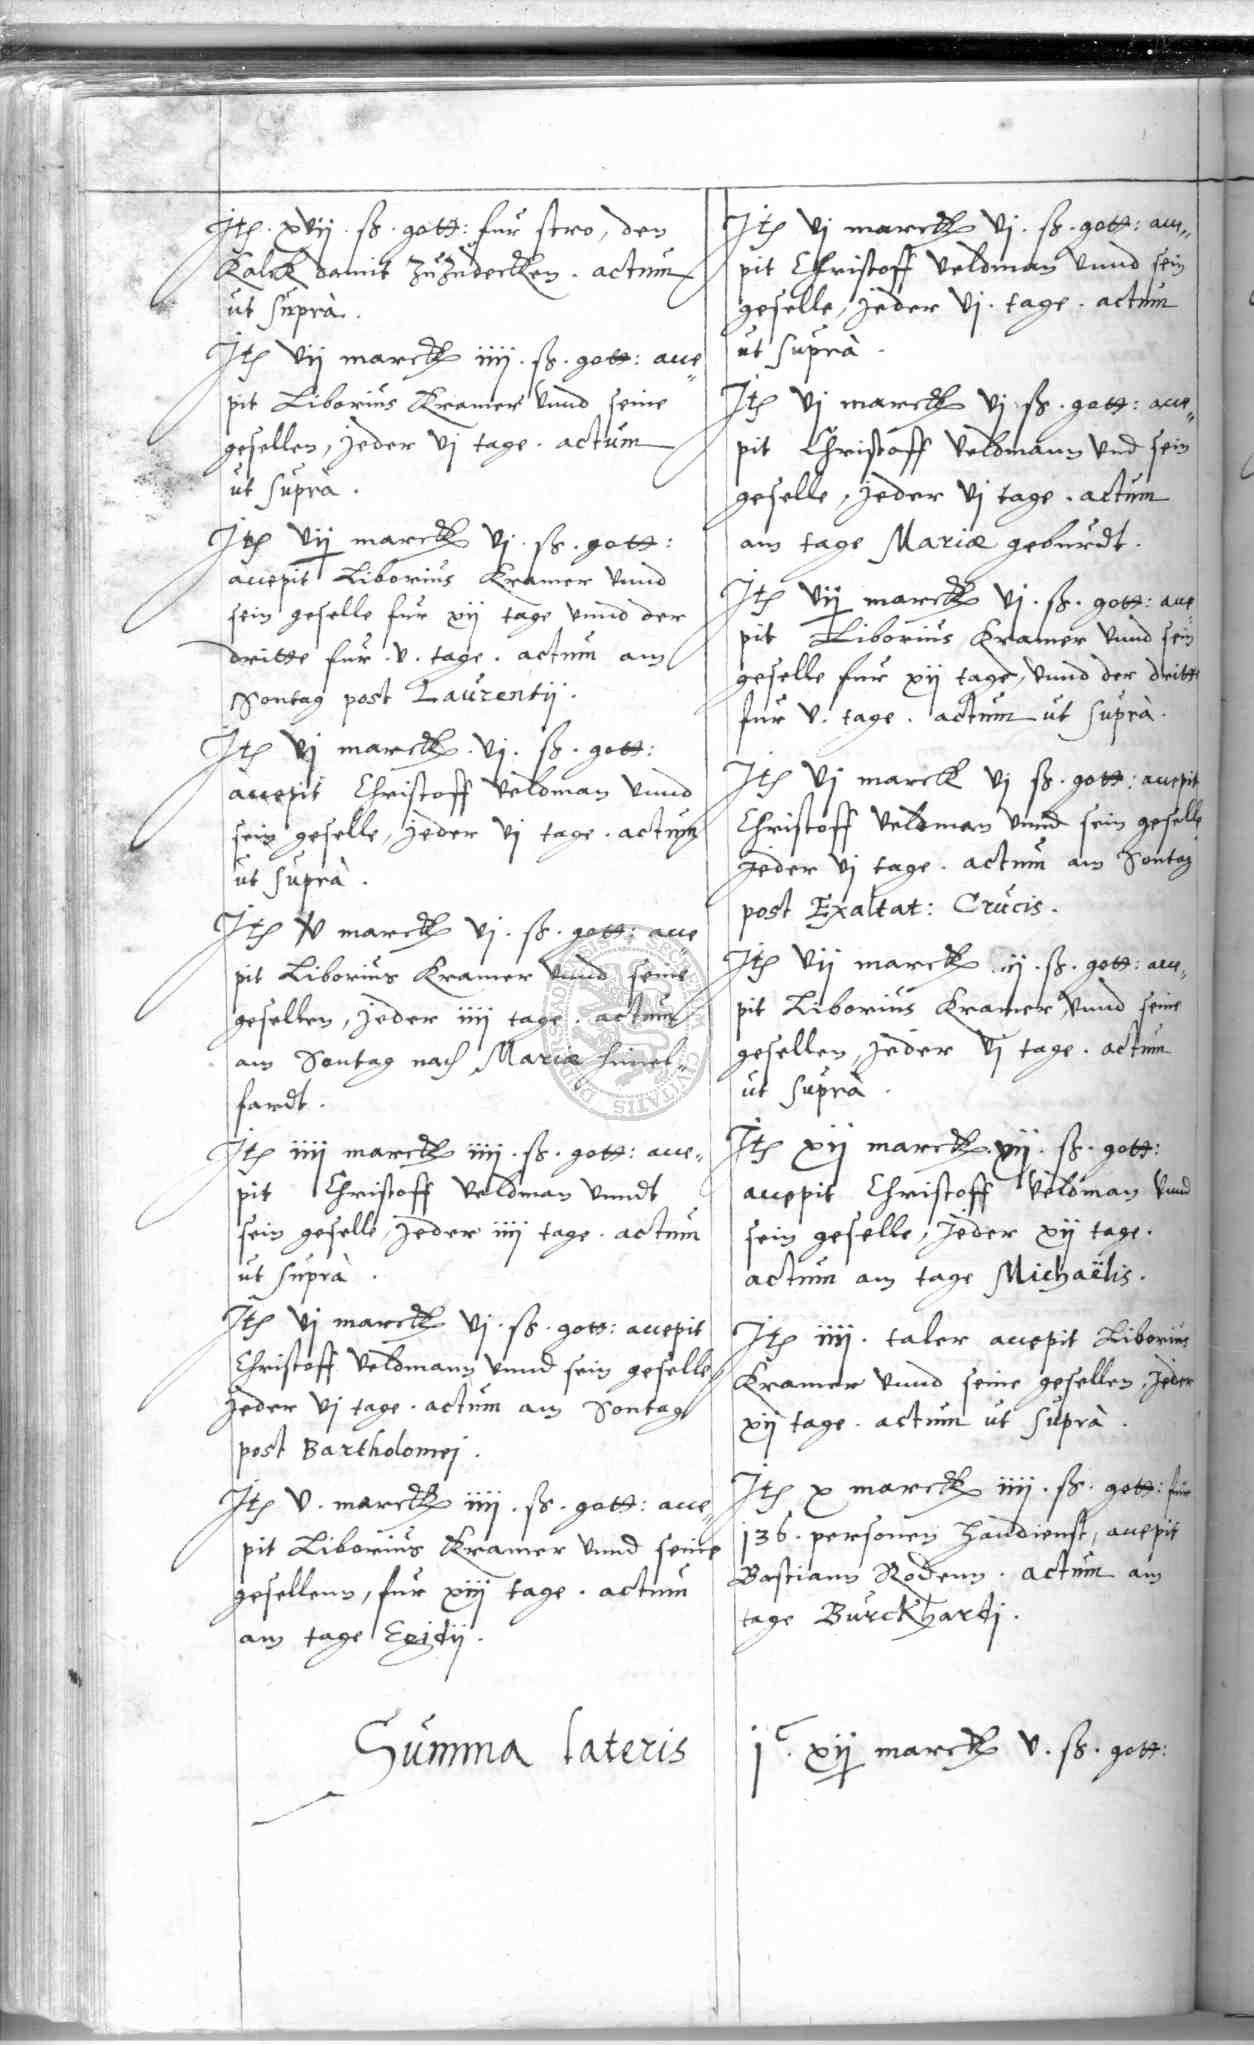 Jtem . xvij . ß . gott: fur stro, den
Kalck damit zůzudecken . actum
ut suprà .
Jtem vij marck iiij . ß . gott: acce„
pit Liborius Kramer vnnd seine
gesellen, jeder vj tage . actum
ut suprà .
Jtem vij marck vj . ß . gott:
accepit Liborius Kramer vnnd
sein geselle fur xij tage vnnd der
dritte fur . v . tage . actum am
Sontag post Laurentij .
Jtem vj marck . vj . ß . gott:
accepit Christoff Veldman vnnd
sein geselle, jeder vj tage . actum
ut suprà .
Jtem v marck vj . ß . gott: acce„
pit Liborius Kramer vnnd seine
gesellen, jeder iiij tage . actum
am Sontag nach Mariæ himel„
fardt .
Jtem iiij marck iiij . ß . gott: acce„
pit Christoff Veldman vnndt
sein geselle, jeder iiij tage . actum
ut suprà .
Jtem vj marck vj . ß . gott: accepit
Christoff Veldmann vnnd sein geselle
jeder vj tage . actum am Sontag
post Bartholomej .
Jtem v . marck iiij . ß . gott: acce„
pit Liborius Kramer vnnd seine
gesellenn, fur xiij tage . actum
am tage Egidij .
Jtem vj marck vj . ß . gott: acce„
pit Christoff Veldman vnnd sein
geselle, jeder vj . tage . actum
ut suprà .
Jtem vj marck vj ß . gott: acce„
pit Christoff Veldmann vnd sein
geselle, jeder vj tage . actum
am tage Mariæ geburdt .
Jtem vij marck vj . ß . gott: acce„
pit Liborius Kramer vnnd sein
geselle fur xij tage, vnnd der dritte
fur v . tage . actum ut suprà .
Jtem vj marck vj ß . gott: accepit
Christoff Veldman vnnd sein geselle
jeder vj tage . actum am Sontag
post Exaltat: Crucis .
Jtem vij marck . ij . ß . gott: acce„
pit Liborius Kramer vnnd seine
gesellen, jeder vj tage . actum
ut suprà .
Jtem xij marck . vij . ß . gott:
accepit Christoff Veldman vnnd
sein geselle, jeder xij tage .
actum am tage Michaëlis .
Jtem iiij . taler accepit Liborius
Kramer vnnd seine gesellen, jeder
xij tage . actum ut suprà .
Jtem x marck iiij . ß . gott: fur
136 . personen handienst, accepit
Bastiann Rodenn . actum am
tage Burckhardj .
Summa lateris jc . xij marck v . ß . gott: